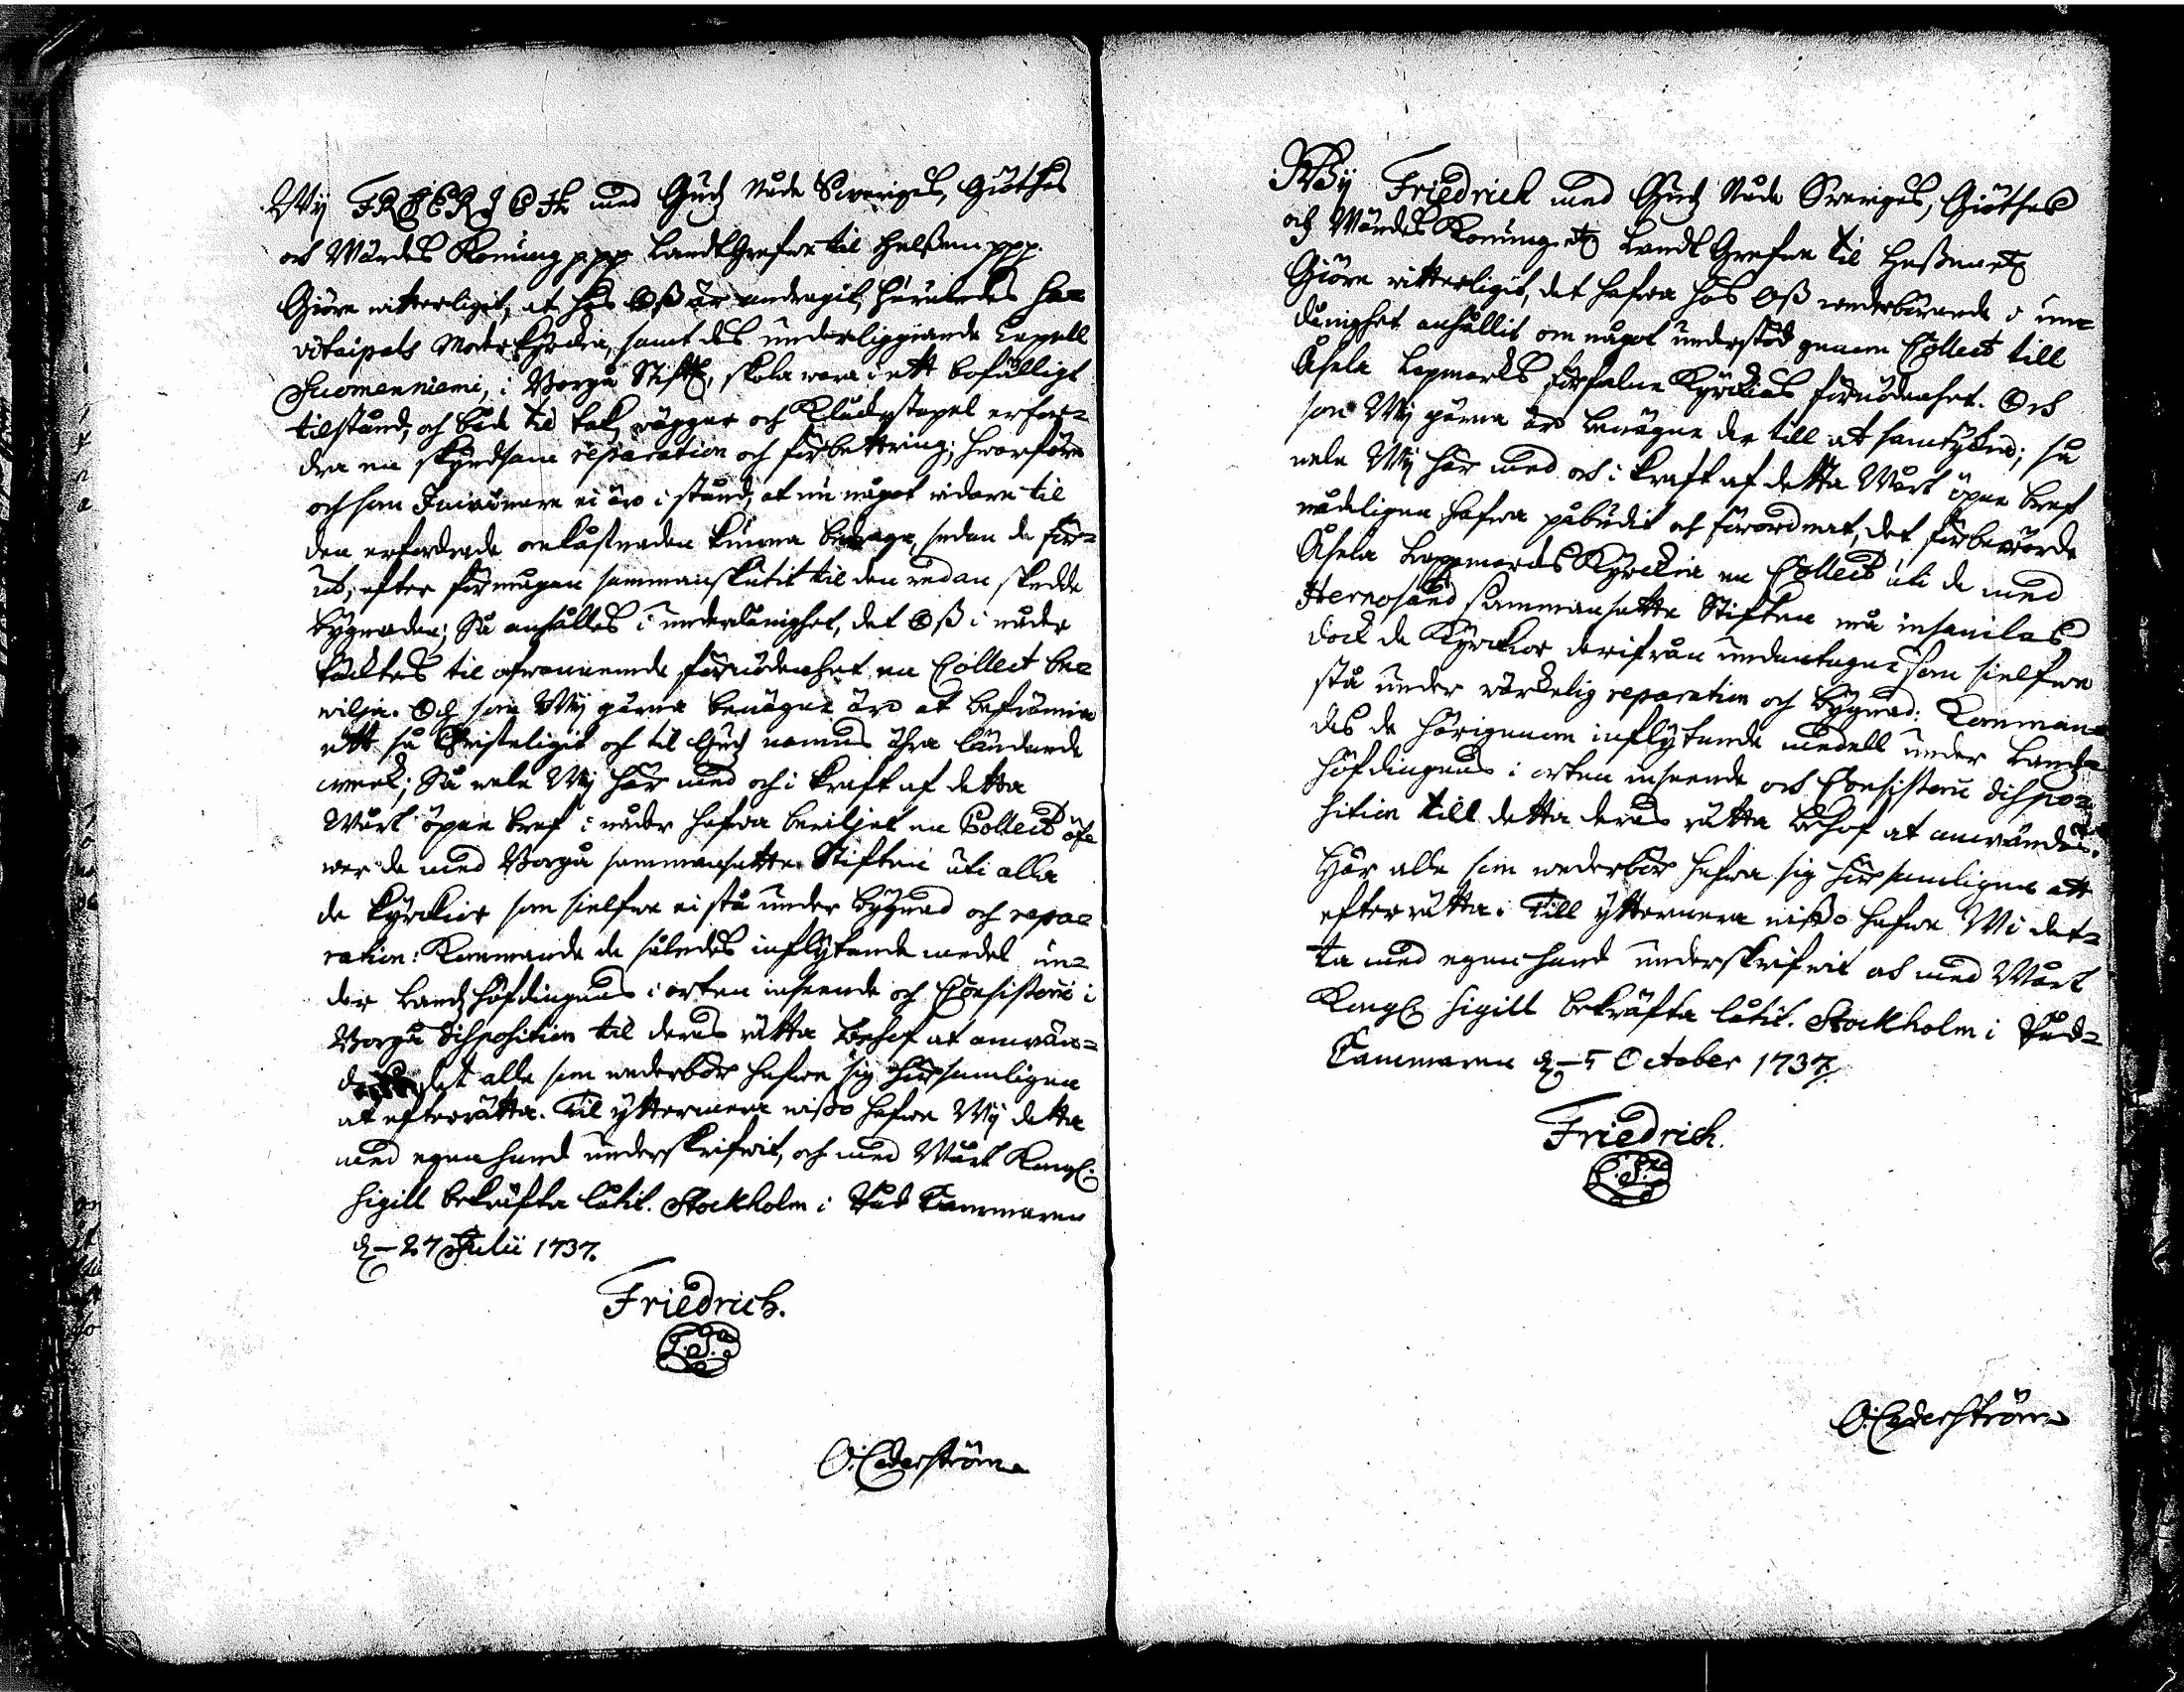 Wij FRIEDRICH med Gudz Nåde Sweriges, Giöthes
och Wändes Konung ppp Landtgrefwe til Hessen ppp.
Giöre witterligit, at hos Oss är andragit, huruledes Sa-
vitaipals Moderkyrckia, samt des underliggiande Capell
Suomenniemi, i Borgå Stifft, skola wara i ett bofälligt
tilstånd, och både til tak, väggar och Kluckstapel erfor-
dra en skyndsam reparation och förbettring; hwarföre
och som Inwånarne ei äro i stånd, at nu något widare til
den erfordrade omkåstnaden kunna bidraga, sedan de för-
ut, efter förmågan sammanskutit til den redan skedde
bygnaden; Så anhålles i underdånighet, det Oss i nåder
täcktes til ofwannemde förnödenhet en Collect be-
wilja. Och som Wij gärna benägne äro at befrämja
ett så Christeligit och til Gudz namns ähra ländande
werck; Så wele Wij här med och i kraft af detta
Wårt öpne bref i nåder hafwa beviljat en Collect öf-
wer de med Borgå sammansatte Stiften uti alla
de kyrckior som sielfwe ei stå under bygnad och repa-
ration: Kommande de således inflytande medel un-
der Landzhöfdingens i orten inseende och Consistorii i
Borgå disposition til deras rätta behof at anwän-
das, det alla som wederbör hafwe sig hörsamligen
at efterrätta. Til yttermera wisso hafwe Wij detta
med egen hand underskrifwit, och med Wårt Kongl:
Sigill bekräfta låtit. Stockholm i Råd Cammaren
d. 27 Julii 1737.
Friedrich.
L.S.
O: Cederström
Wij Friedrich med Gudz Nåde Sweriges, Giöthes
och Wändes Konung etc Landt Grefwe til Hessen etc
Giöre witterligit, det hafwa hos Oss wederbörande i un-
dånighet anhållit om något understöd genom Collect till
Åsele Lapmarks förfalne Kyrckias förnödenhet. Och
som Wij gärna äro benägne der till at samtycka; så
wele Wij här med och i kraft af detta Wårt öpne bref
nådeligen hafwa påbudit och förordnat, det förberörde
Åsele Lappmarks Kyrckia en Collect uti de med
Hernösand sammansatte Stiften må insamlas,
dock de Kyrckior derifrån undantagne som sielfwe
stå under wärckelig reparation och bygnad: Komman-
des de härigenom inflytande medell under Landz-
höfdingens i orten inseende och Consistorii dispo-
sition till detta deras rätta behof at användas.
Här alla som wederbör hafwa sig hörsamligen att
efterrätta. Till yttermera wisso hafwe Wi det-
ta med egen hand underskrifwit och med Wårt
Kongl Sigill bekräfta låtit. Stockholm i Råd-
Cammaren d. 5 October 1737.
Friedrich.
L.S.
O: Cederström